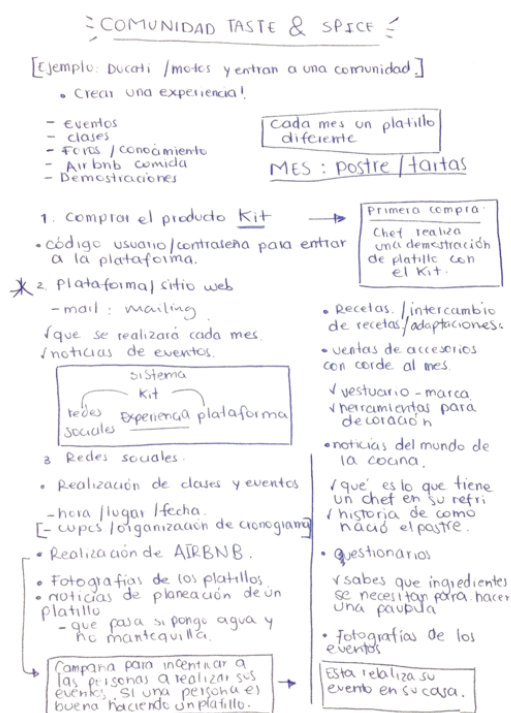 COMUNIDAD TASTE & SPICE
[Ejemplo: Ducati /motos y entran a una comunidad.]
• Crear una experiencia!
- eventos
- clases
- Foros /conocimiento
- Air bnb comida
- Demostraciones
Cada mes un platillo
diferente
MES : postre / tartas
1. Comprar el producto Kit
• código usuario/contraseña para entrar
a la plataforma.
Primera compra.
Chef realiza
una demostración
de platillo con
el Kit.
2 Plataforma/ sitio web
- mail : mailing
√ que se realizará cada mes.
√ noticias de eventos.
sistema
Kit
redes
sociales
Experiencia
plataforma
3 Redes sociales.
• Realización de clases y eventos
- hora /lugar /fecha.
[- cupos /organización de cronograma]
• Realización de AIRBNB.
• Fotografías de los platillos
• noticias de planeación de un
platillo
- que pasa si pongo agua y
no mantequilla.
Campaña para incentivar a
las personas a realizar sus
eventos. Si una persona es
buena haciendo un platillo.
• Recetas. /intercambio
de recetas/adaptaciones.
• ventas de accesorios
con corde al mes.
√ vestuario - marca
√ herramientas para
decoración
• noticias del mundo de
la cocina.
√ qué es lo que tiene
un chef en su refri
√ historia de como
nació el postre.
• Questionarios
√ sabes que ingredientes
se necesitan para hacer
una
• Fotografías de los
eventos
Esta realiza su
evento en su casa.